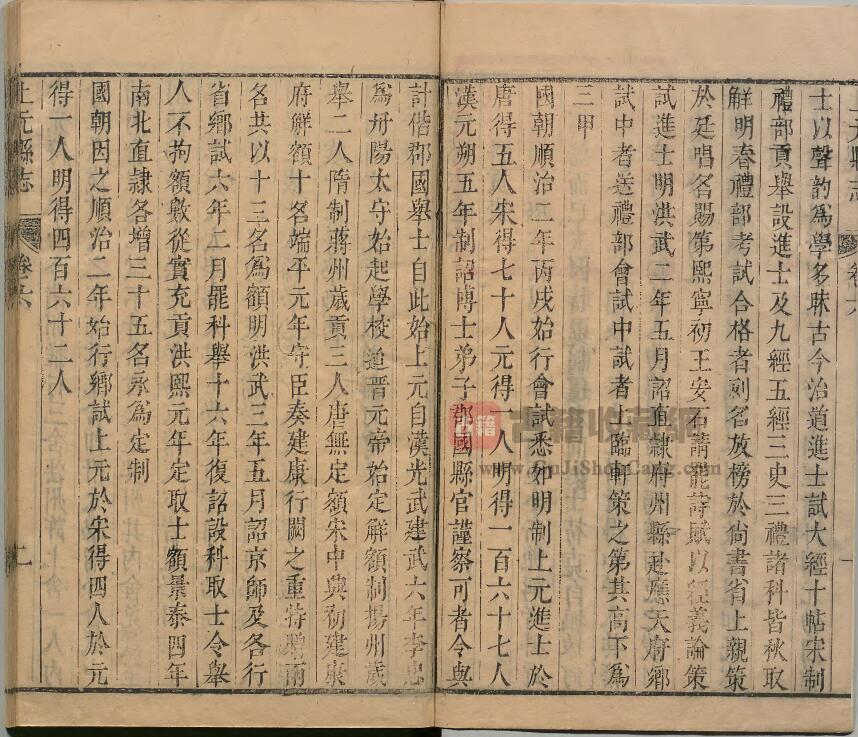 上元縣志 卷六 一
士以聲韵為學多昧古今治道進士試大經十帖宋制
禮部貢舉設進士及九經五經三史三禮諸科皆秋取
解明春禮部考試合格者列名放榜於尚書省上親策
於廷唱名賜第熙寧初王安石請罷詩賦以經義論策
試進士明洪武二年五月詔直隷府州縣赴應天府鄉
試中者送禮部會試中試者上臨軒策之第其高下為
三甲
國朝順治二年丙戌始行會試悉如明制上元進士於
唐得五人宋得七十人元得一人明得一百六十七人
漢元朔五年制詔博士弟子郡國縣官謹察可者令與
計偕郡國舉士自此始上元自漢光武建武六年李忠
為丹陽太守始起學校迨晉元帝始定解額制揚州歲
舉二人隋制蔣州歲貢三人唐無定額宋中興初建康
府解額十名端平元年守臣奏建康行闕之重特增兩
名共以十三名為額明洪武三年五月詔京師及各行
省鄉試六年二月罷科舉十六年復詔設科取士令舉
人不拘額數從實充貢洪熙元年定取士額景泰四年
南北直隷各增三十五名永為定制
國朝因之順治二年始行鄉試上元於宋得四人於元
得一人明得四百六十二人
上元縣志 卷六 二
古籍收藏網